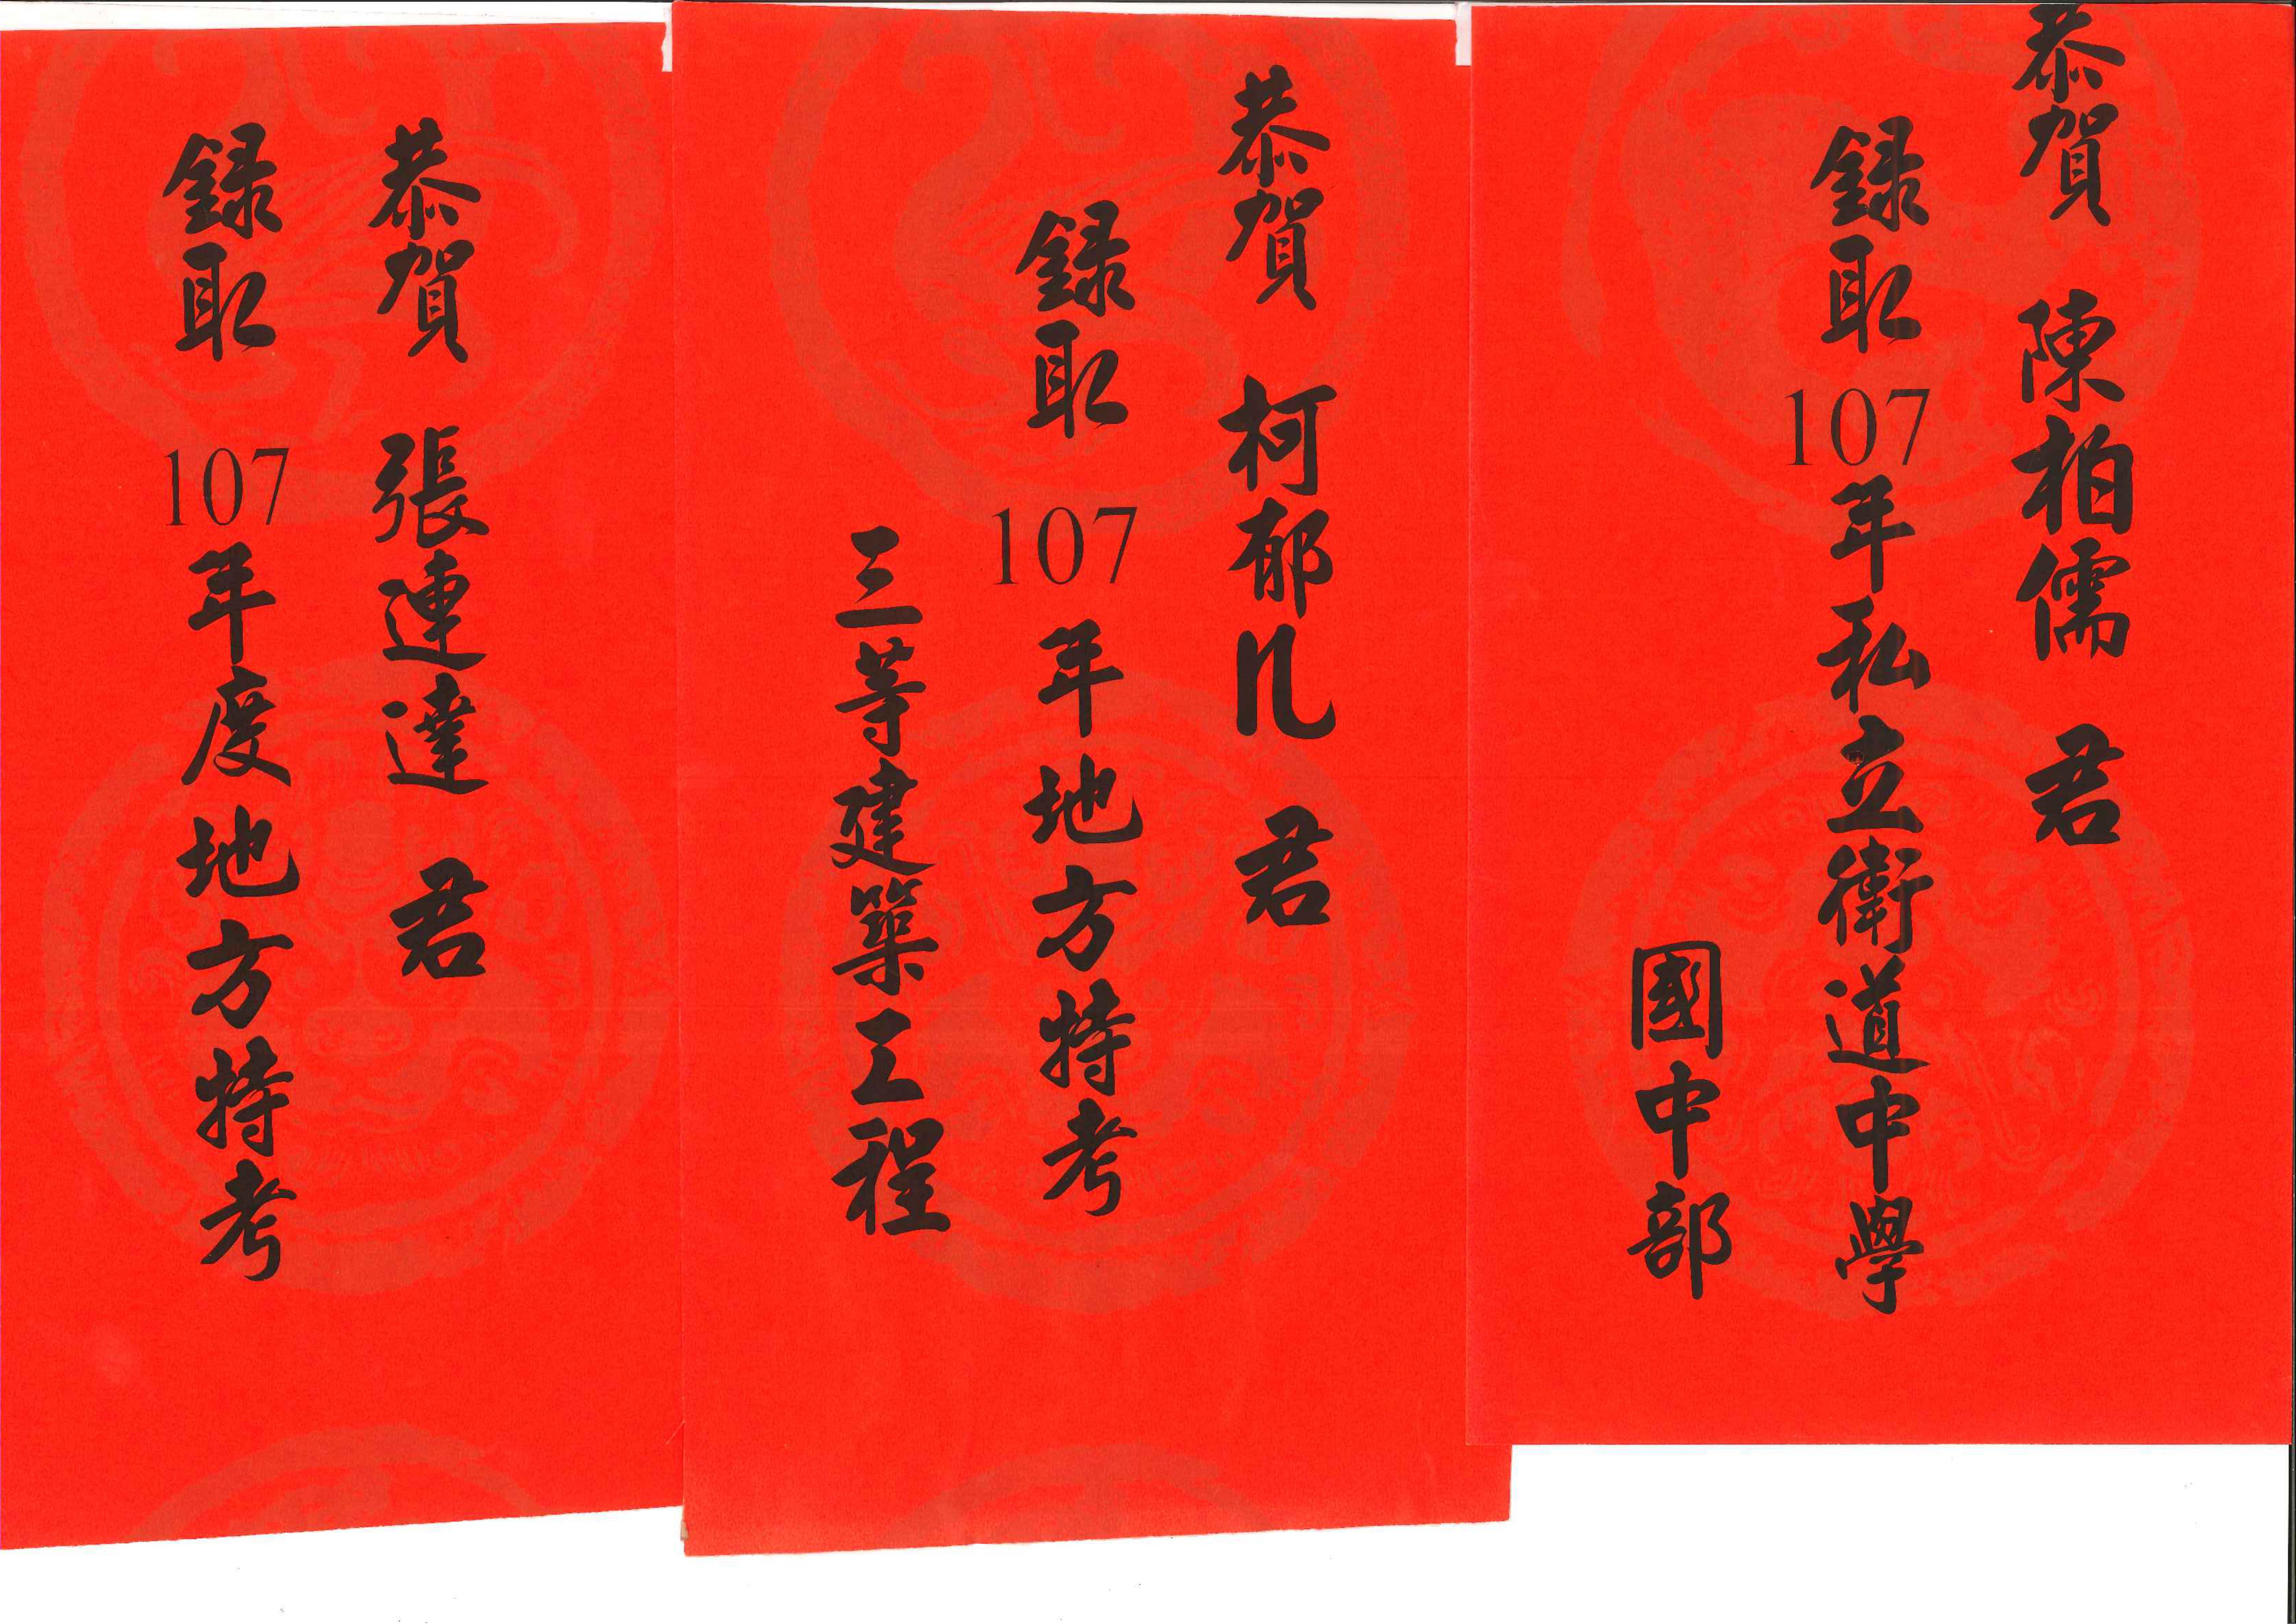 恭賀 陳柏儒 君
錄取107年私立衛道中學
國中部
恭賀 柯郁凡 君
錄取 107 年地方特考
三等建築工程
恭賀 張連達 君
錄取 107 年度地方特考